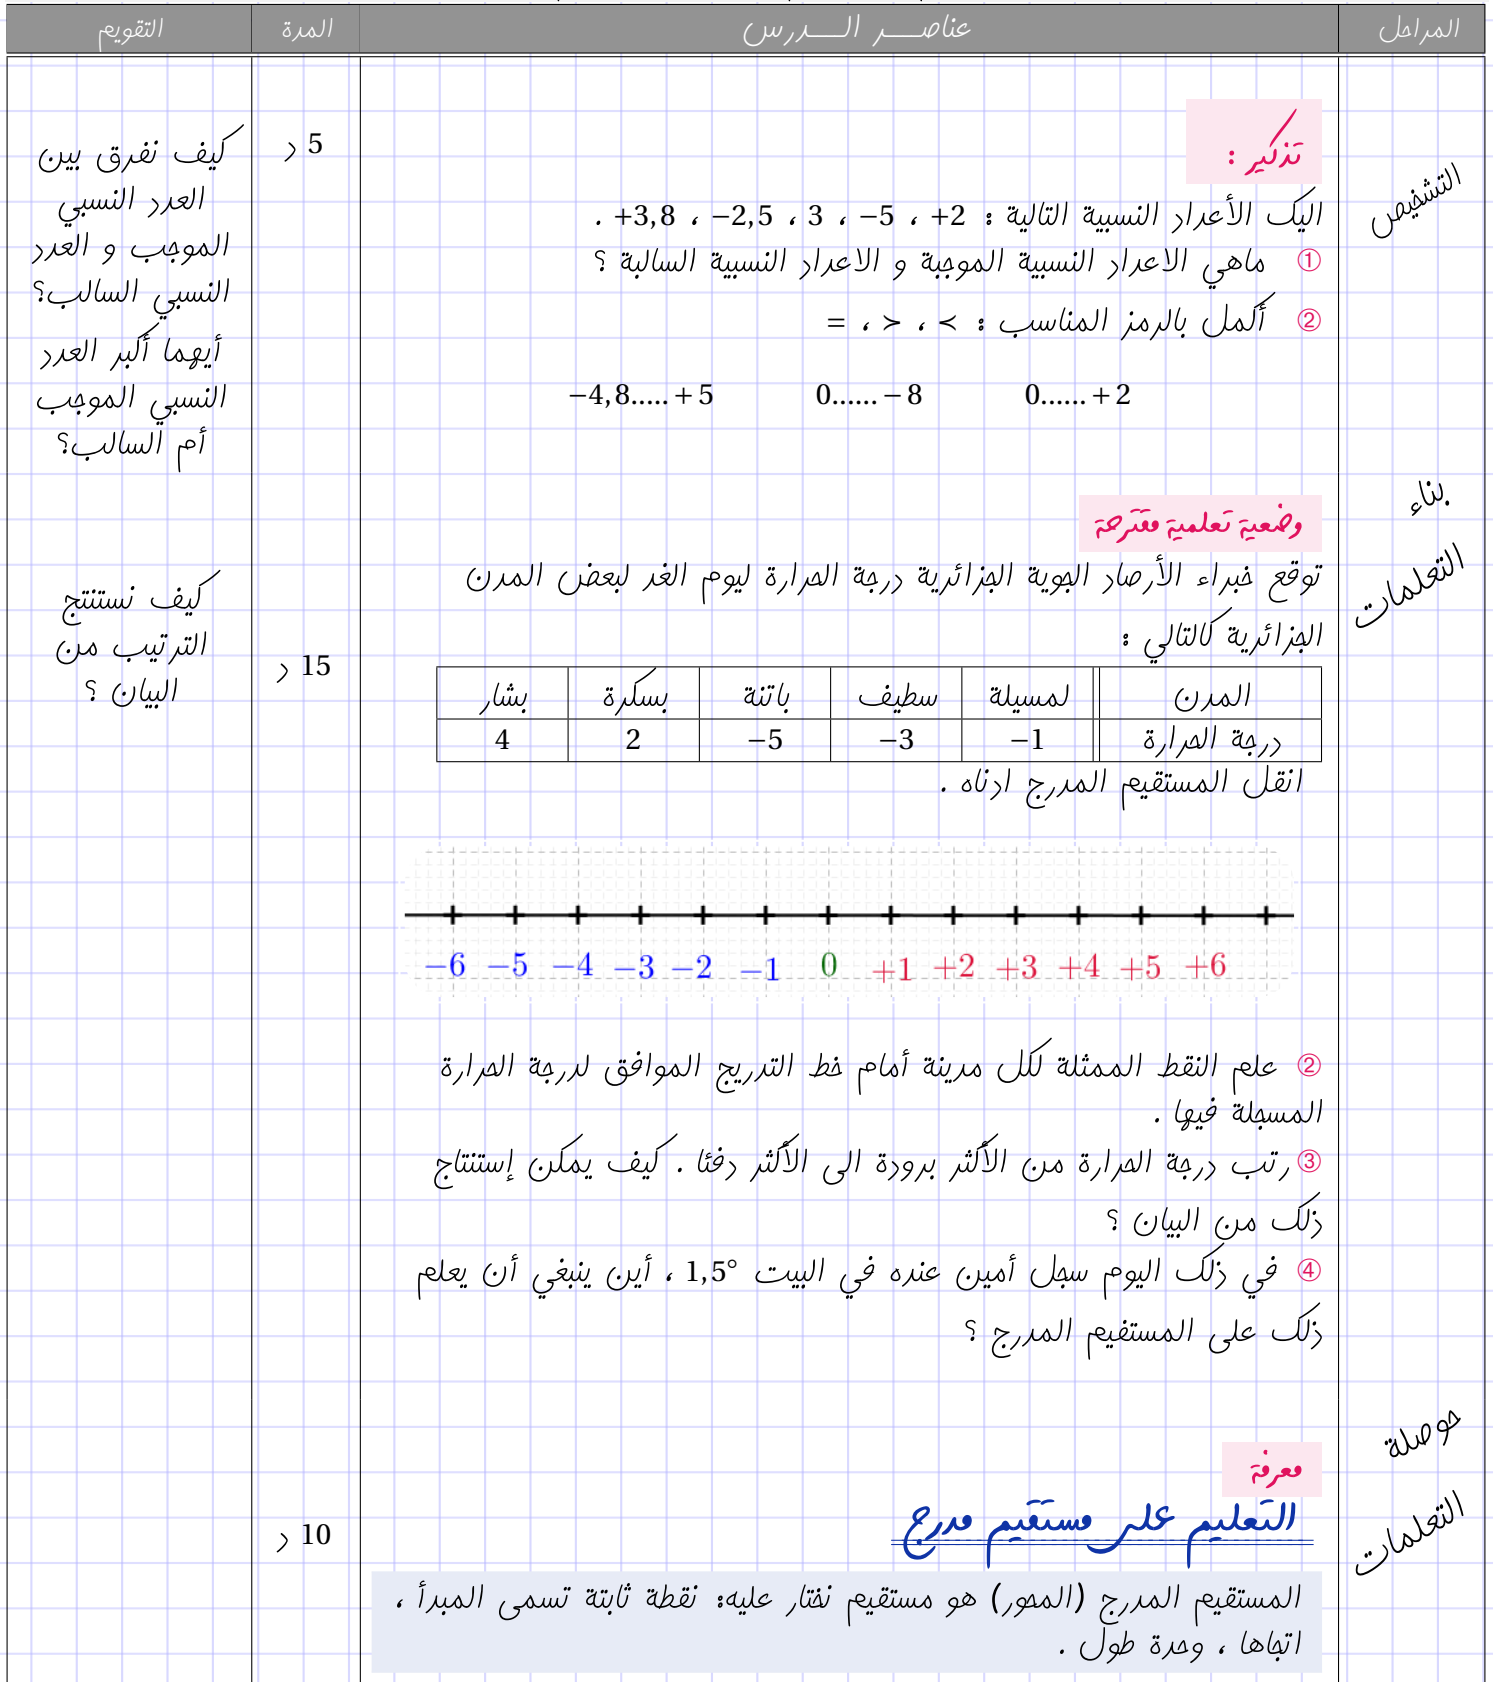 المراحل
عناصر الدرس
المدة
التقويم
التشخيص
تذكير :
اليك الأعداد النسبية التالية : +2 ، −5 ، 3 ، −2,5 ، +3,8 .
① ماهي الاعداد النسبية الموجبة و الاعداد النسبية السالبة ؟
② أكمل بالرمز المناسب : < ، > ، =
0......+2
0......−8
−4,8.....+5
5 د
كيف نفرق بين
العدد النسبي
الموجب و العدد
النسبي السالب؟
أيهما أكبر العدد
النسبي الموجب
أم السالب؟
بناء
التعلمات
وضعية تعلمية مقترحة
توقع خبراء الأرصاد الجوية الجزائرية درجة الحرارة ليوم الغد لبعض المدن
الجزائرية كالتالي :
المدن لمسيلة سطيف باتنة بسكرة بشار
درجة الحرارة −1 −3 −5 2 4
انقل المستقيم المدرج ادناه .
−6 −5 −4 −3 −2 −1 0 +1 +2 +3 +4 +5 +6
② علم النقط الممثلة لكل مدينة أمام خط التدريج الموافق لدرجة الحرارة
المسجلة فيها .
③ رتب درجة الحرارة من الأكثر برودة الى الأكثر دفئا . كيف يمكن إستنتاج
ذلك من البيان ؟
④ في ذلك اليوم سجل أمين عنده في البيت 1,5° ، أين ينبغي أن يعلم
ذلك على المستفيم المدرج ؟
15 د
كيف نستنتج
الترتيب من
البيان ؟
حوصلة
التعلمات
معرفة
التعليم على مستقيم مدرج
المستقيم المدرج (المحور) هو مستقيم نختار عليه: نقطة ثابتة تسمى المبدأ ،
اتجاها ، وحدة طول .
10 د